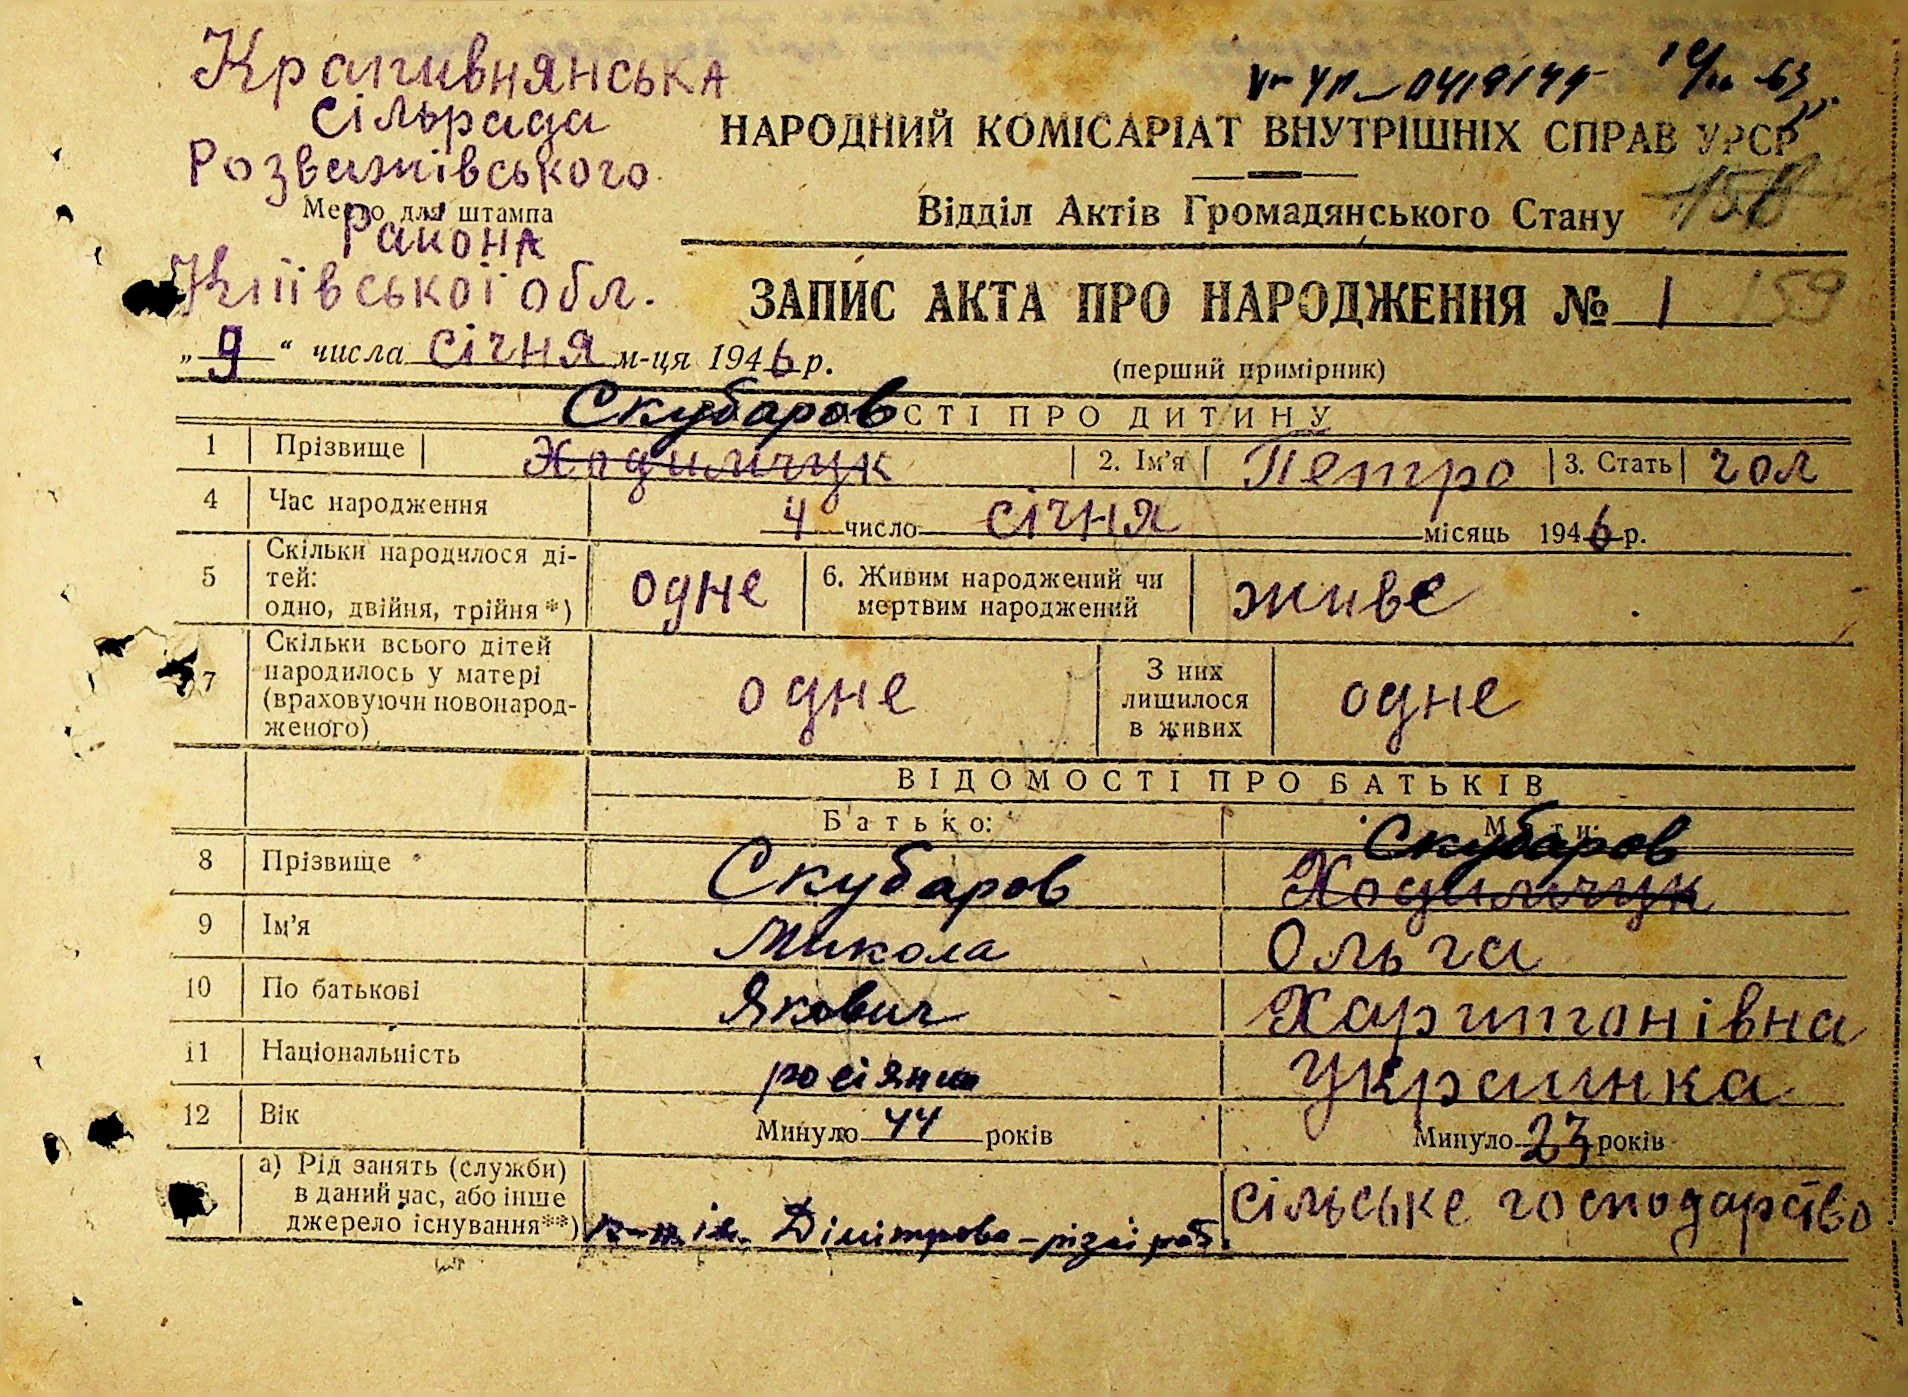 Крапивнянська
сільрада
Розважівського
Місце для штампа
Района
Київської обл.
УРСР
НАРОДНИЙ КОМІСАРІАТ ВНУТРІШНІХ СПРАВ УРСР
Відділ Актів Громадянського Стану
ЗАПИС АКТА ПРО НАРОДЖЕННЯ № 1 159
„9“ числа січня м-ця 1946 р.
(перший примірник)
Скубаров
СТІ ПРО ДИТИНУ
1 Прізвище Ходимчук 2. Ім’я Петро 3. Стать чол
4 Час народження 4 число січня місяць 1946 р.
5 Скільки народилося ді-
тей:
одно, двійня, трійня*) одне 6. Живим народжений чи
мертвим народжений живе
7 Скільки всього дітей
народилось у матері
(враховуючи новонарод-
женого) одне З них
лишилося
в живих одне
ВІДОМОСТІ ПРО БАТЬКІВ
Батько: Мати:
Скубаров
8 Прізвище Скубаров Ходимчук
9 Ім’я Микола Ольга
10 По батькові Якович Харитонівна
11 Національність росіянин Украинка
12 Вік Минуло 44 років Минуло 23 років
а) Рід занять (служби)
в даний час, або інше
джерело існування**) ім. Дімітрова - різні роб. сільське господарство